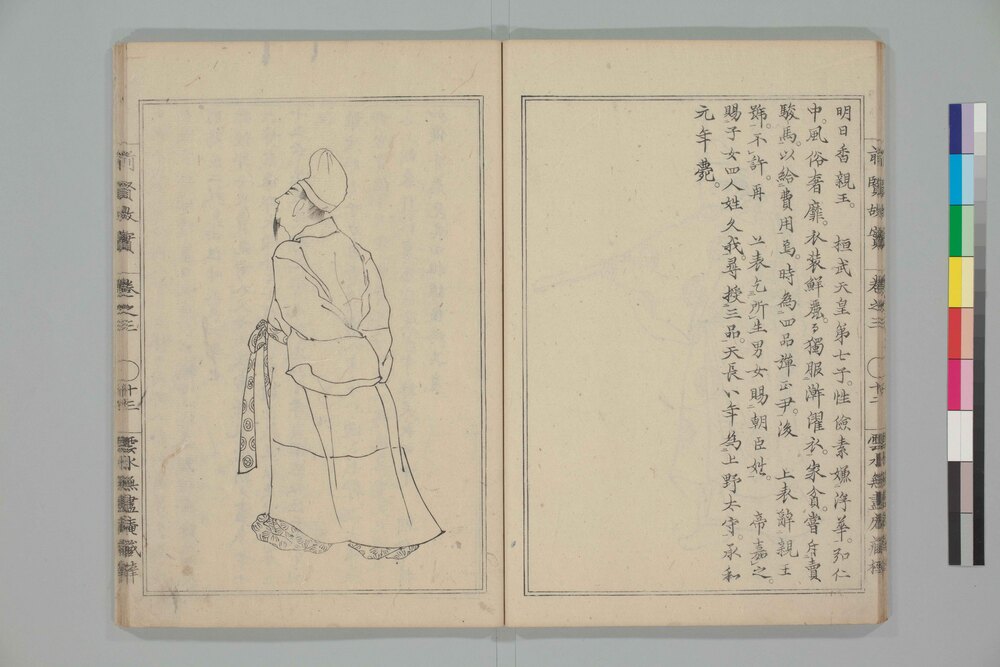 明日香親王。　桓武天皇第七子。性儉素嫌浮華。弘仁
中。風俗奢靡。衣裝鮮麗。獨服澣濯衣。家貧嘗斥賣
駿馬。以給費用焉。時為四品彈正尹。後　上表辭親王
號。不許。再　上表乞所生男女賜朝臣姓。　帝嘉之。
賜子女四人姓久我。尋授三品。天長八年為上野太守。承和
元年薨。
前賢故實
卷之三
十二
雲水無盡庵藏
前賢故實
卷之三
雲水無盡庵藏